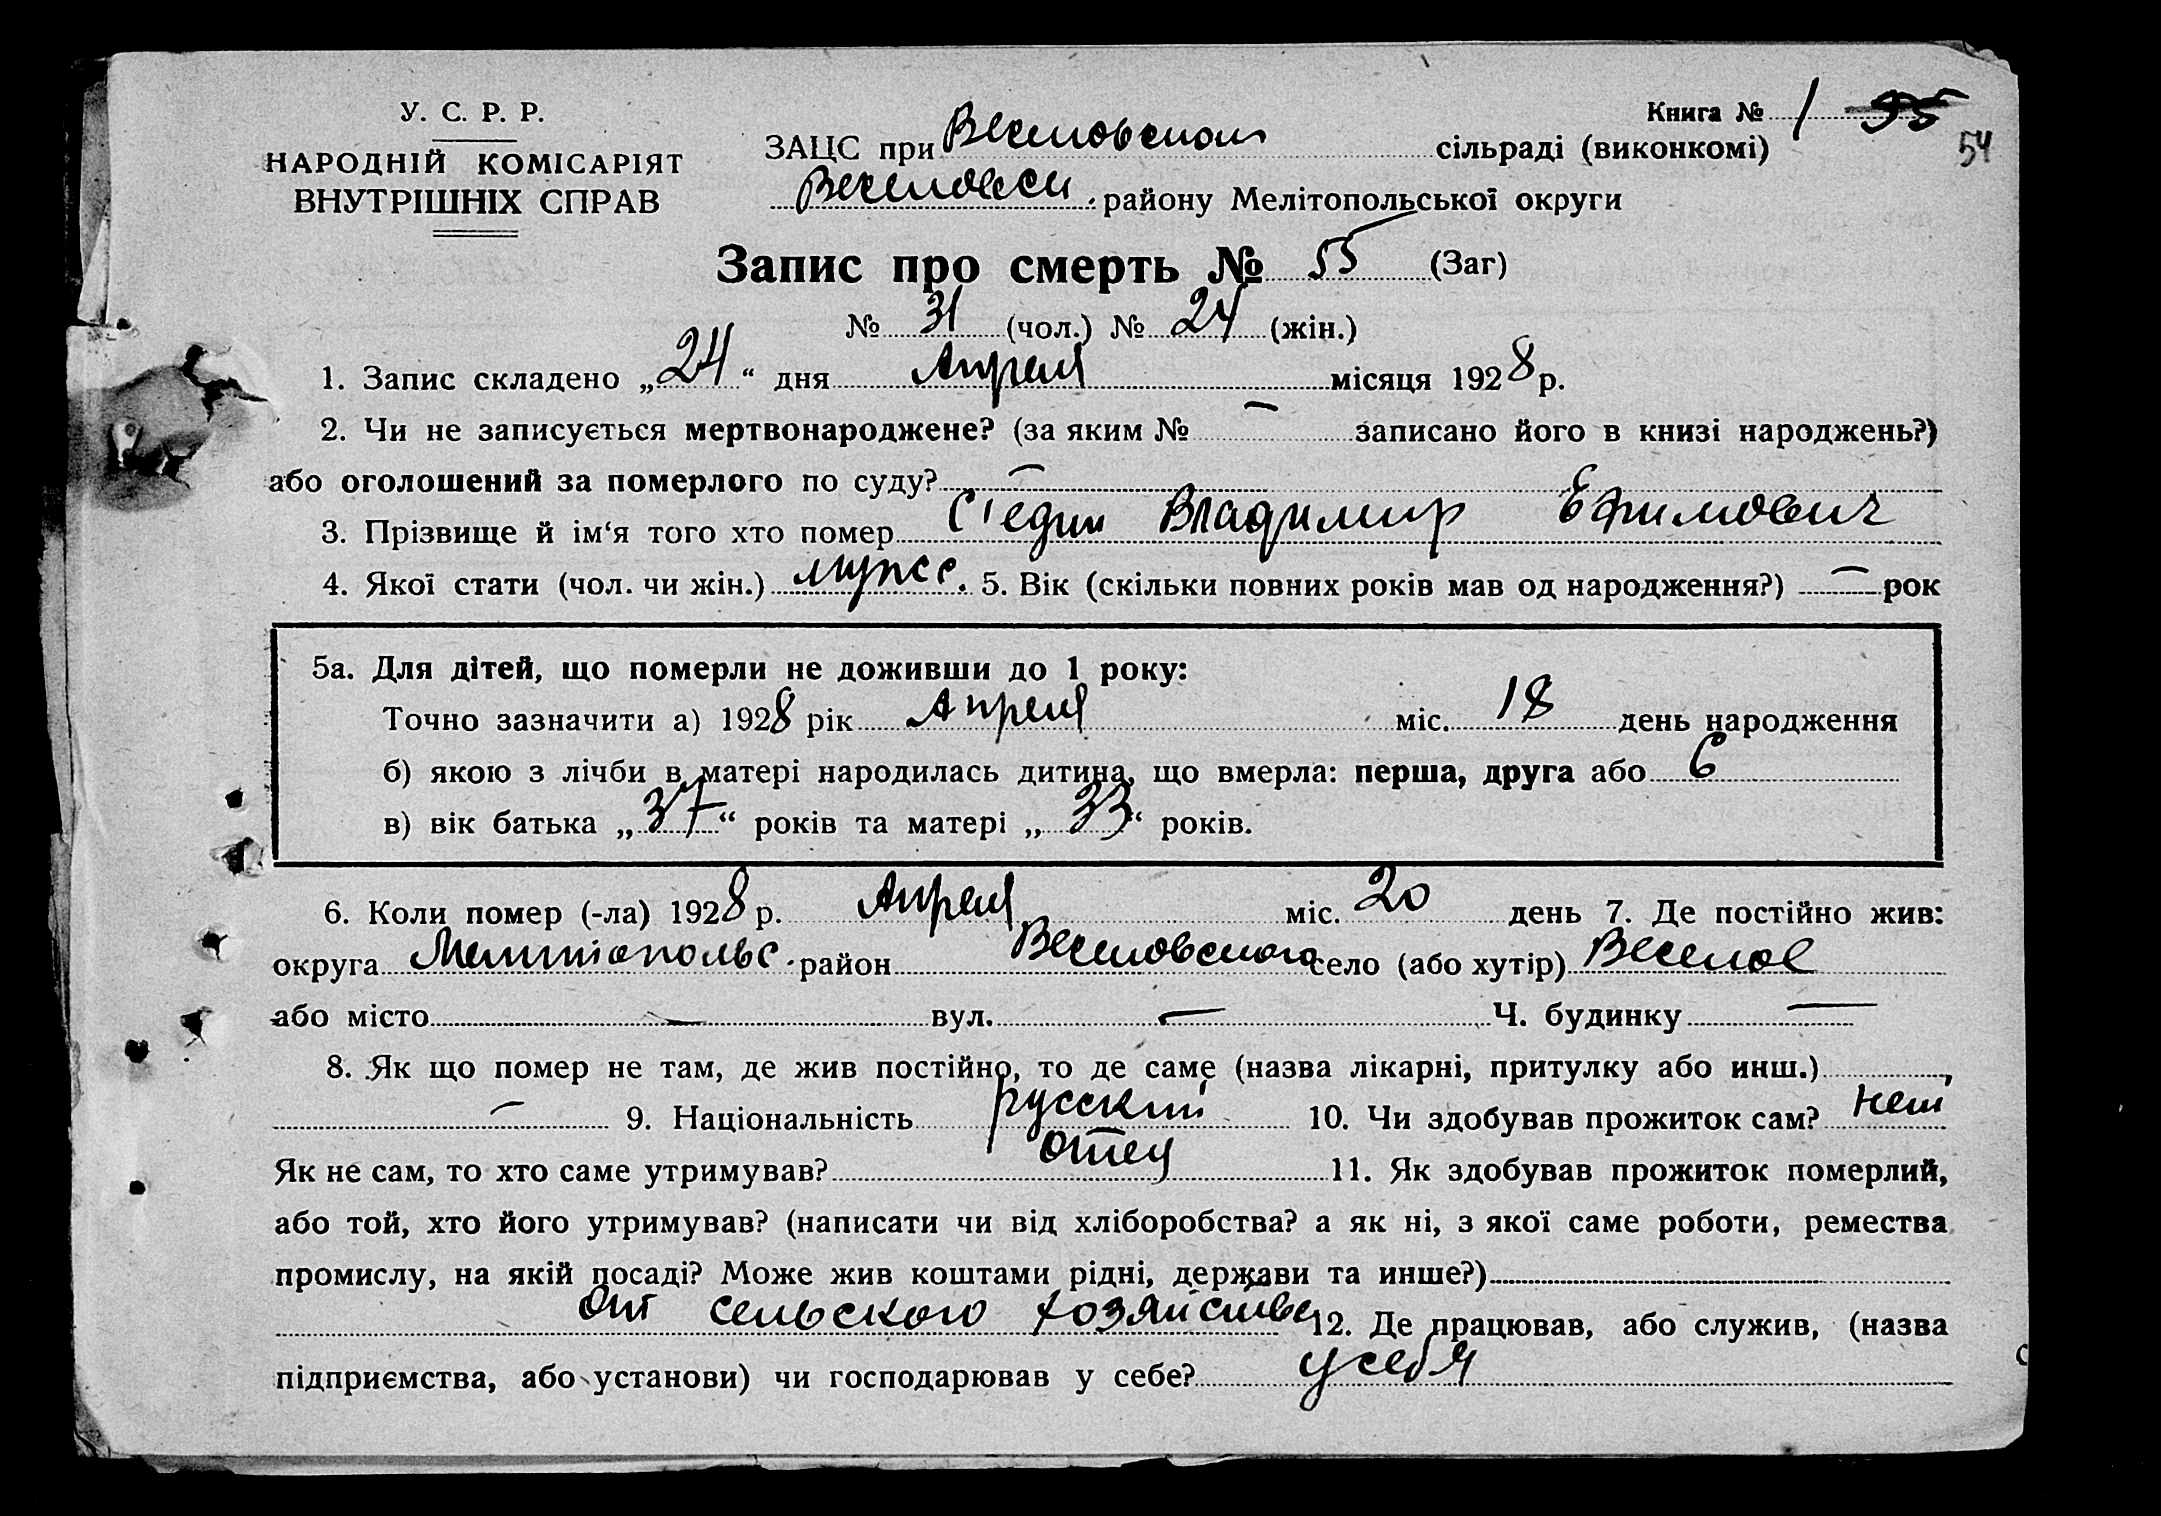 У. С. Р. Р.
НАРОДНІЙ КОМІСАРІЯТ
ВНУТРІШНІХ СПРАВ
Книга № 1 55
54
ЗАЦС при Веселовском сільраді (виконкомі)
Веселовск. району Мелітопольської округи
Запис про смерть № 55 (Заг)
№ 31 (чол.) № 24 (жін.)
1. Запис складено „24“ дня Апреля місяця 1928 р.
2. Чи не записується мертвонароджене? (за яким № — записано його в книзі народжень?)
або оголошений за померлого по суду? —
3. Прізвище й ім‘я того хто помер Владимир Ефимович
4. Якої стати (чол. чи жін.) мужс. 5. Вік (скільки повних років мав од народження?) — рок
5а. Для дітей, що померли не доживши до 1 року:
Точно зазначити а) 1928 рік Апреля міс. 18 день народження
б) якою з лічби в матері народилась дитина, що вмерла: перша, друга або 6
в) вік батька „37“ років та матері „33“ років.
6. Коли помер (-ла) 1928 р. Апреля міс. 20 день 7. Де постійно жив:
округа Мелитопольс. район Веселовского село (або хутір) Веселое
або місто — вул. — Ч. будинку —
8. Як що помер не там, де жив постійно, то де саме (назва лікарні, притулку або инш.)
— 9. Національність русский 10. Чи здобував прожиток сам? нет
Як не сам, то хто саме утримував? отец 11. Як здобував прожиток померлий,
або той, хто його утримував? (написати чи від хліборобства? а як ні, з якої саме роботи, ремества
промислу, на якій посаді? Може жив коштами рідні, держави та инше?)
от сельского хозяйства 12. Де працював, або служив, (назва
підприємства, або установи) чи господарював у себе? у себя